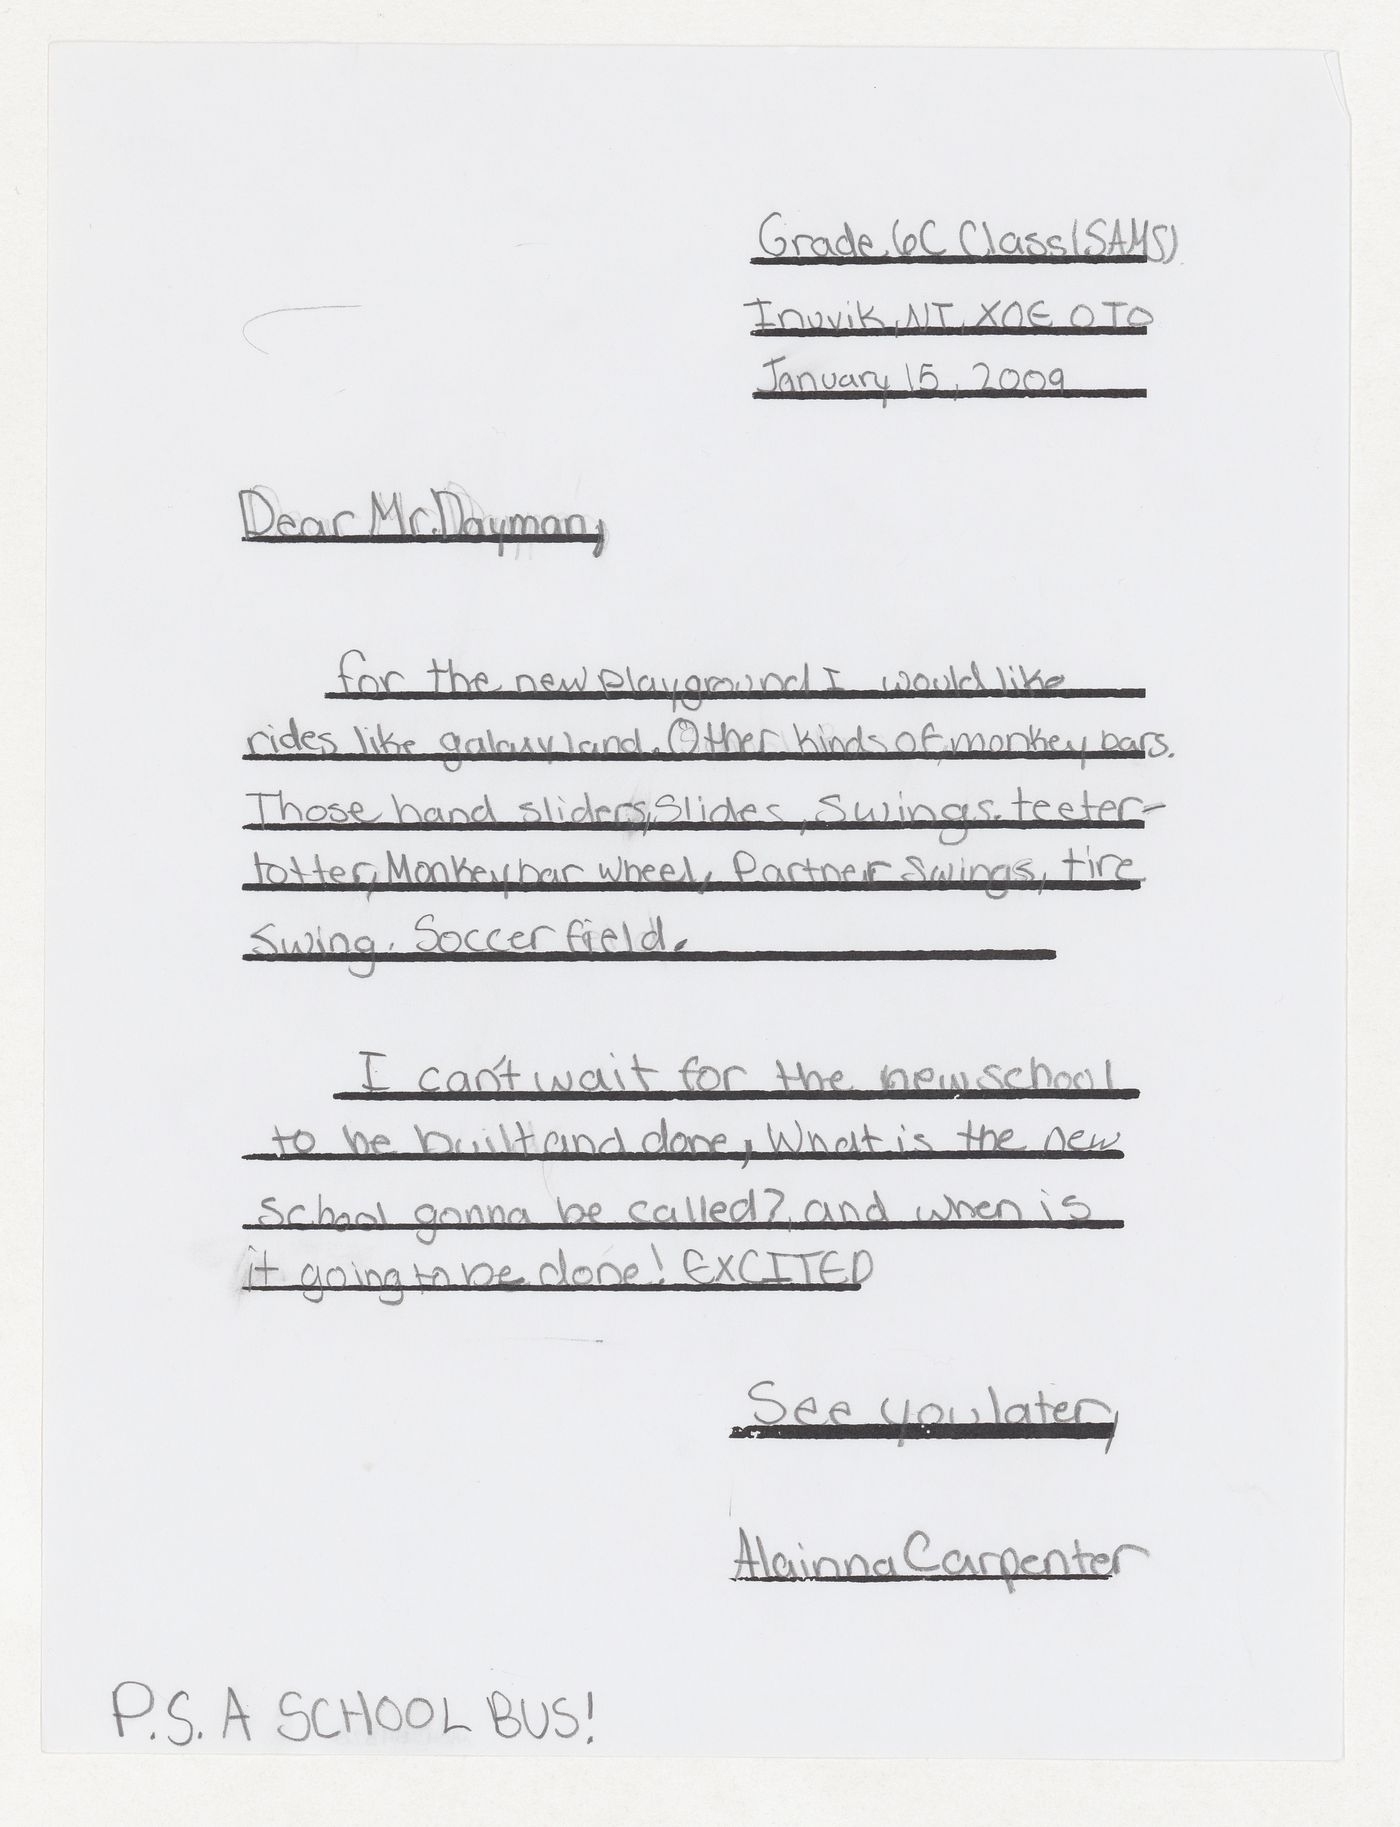 Grade 6C Class (SAMS)
Inuvik, NT, X0E 0T0
January 15, 2009
Dear Mr. Dayman,
for the new playground I would like
rides like galaxy land. Other kinds of monkey bars.
Those hand sliders, Slides, Swings. teeter-
totter, Monkey bar wheel, Partner Swings, tire
Swing. Soccer field.
I can't wait for the new school
to be built and done, What is the new
School gonna be called? and when is
it going to be done! EXCITED
See you later,
Alainna Carpenter
P.S. A SCHOOL BUS!